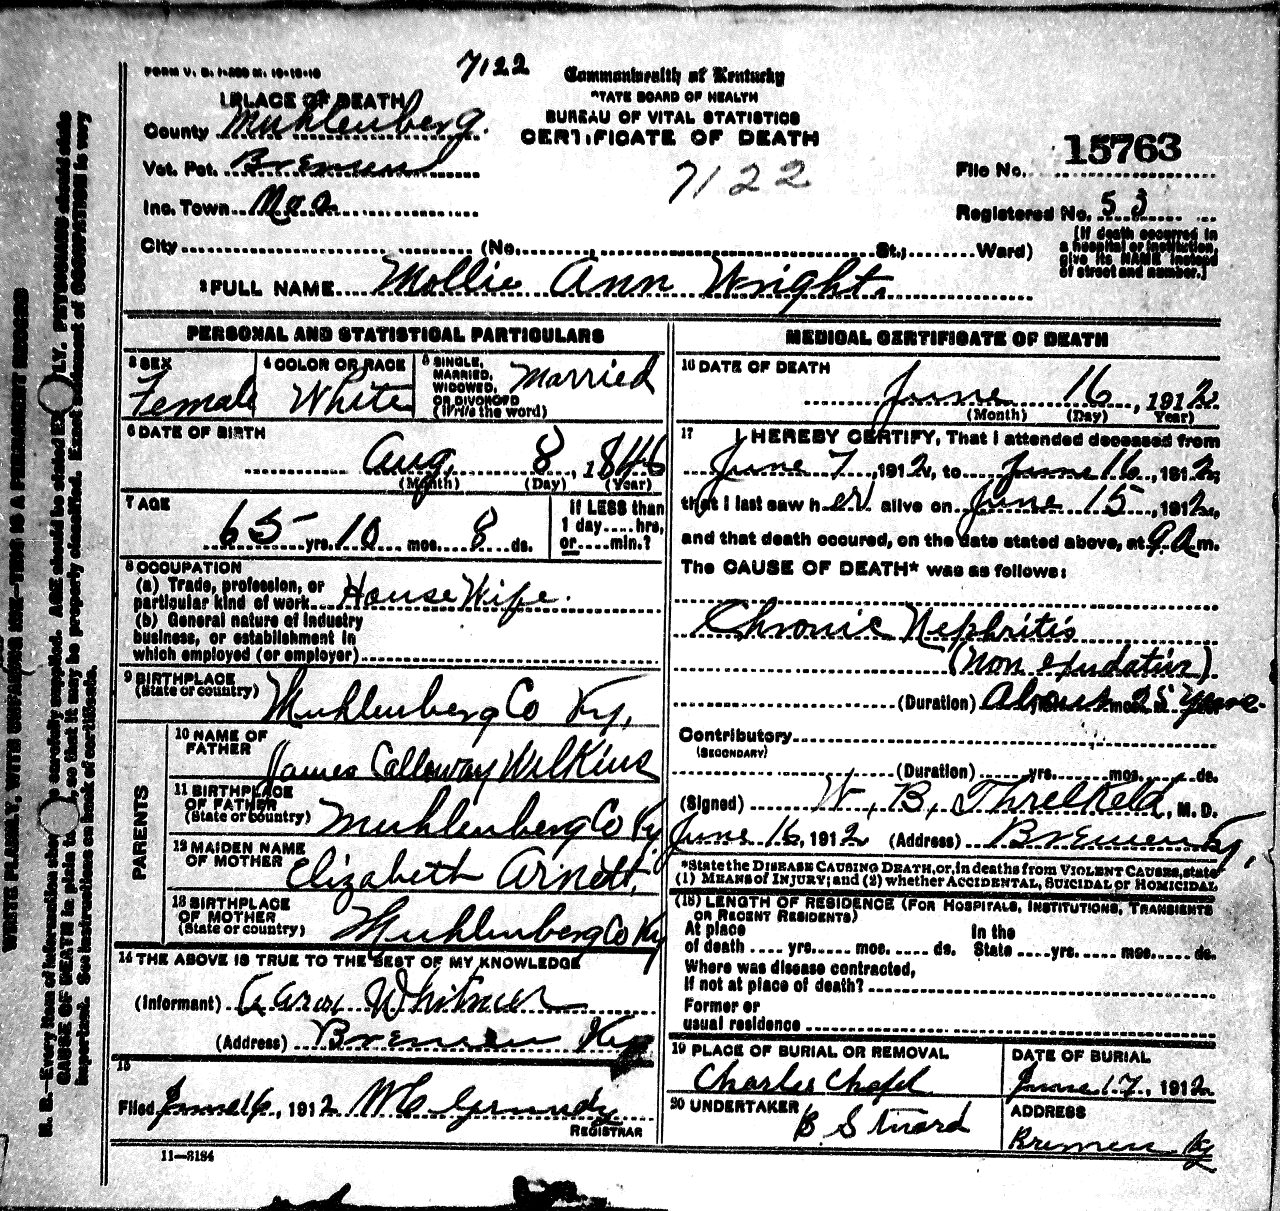 FORM V. S. 1-200 M. 10-18-10
7122
Commonwealth of Kentucky
STATE BOARD OF HEALTH
BUREAU OF VITAL STATISTICS
CERTIFICATE OF DEATH
7122
1 PLACE OF DEATH
County Muhlenberg.
Vot. Pct. Bremen
Inc. Town
File No. 15763
Registered No. 53
City (No. St.; Ward)
(If death occurred in a hospital or institution, give its NAME instead of street and number.)
2 FULL NAME Mollie Ann Wright.
PERSONAL AND STATISTICAL PARTICULARS
3 SEX
Female
4 COLOR OR RACE
White
5 SINGLE, MARRIED, WIDOWED, OR DIVORCED (Write the word)
Married
6 DATE OF BIRTH
Aug. 8, 1846
(Month) (Day) (Year)
7 AGE
65 yrs. 10 mos. 8 ds.
If LESS than 1 day.....hrs, or.....min.?
8 OCCUPATION
(a) Trade, profession, or particular kind of work House Wife.
(b) General nature of industry business, or establishment in which employed (or employer)
9 BIRTHPLACE
(State or country) Muhlenberg Co Ky.
PARENTS
10 NAME OF FATHER James Calloway Wilkins
11 BIRTHPLACE OF FATHER (State or country) Muhlenberg Co Ky
12 MAIDEN NAME OF MOTHER Elizabeth Arnett.
13 BIRTHPLACE OF MOTHER (State or country) Muhlenberg Co Ky
14 THE ABOVE IS TRUE TO THE BEST OF MY KNOWLEDGE
(Informant) Whitmer
(Address) Bremen Ky
15
Filed June 16, 1912 W C Grundy
REGISTRAR
11—3184
MEDICAL CERTIFICATE OF DEATH
16 DATE OF DEATH
June 16, 1912
(Month) (Day) Year)
17 I HEREBY CERTIFY, That I attended deceased from
June 7, 1912, to June 16, 1912,
that I last saw her alive on June 15, 1912,
and that death occured, on the date stated above, at 9 a m.
The CAUSE OF DEATH* was as follows:
Chronic Nephritis
(non exudative).
(Duration) About 25 years.
Contributory
(SECONDARY)
(Duration) yrs. mos. ds.
(Signed) W. B. Threlkeld, M. D.
June 16, 1912 (Address) Bremen Ky.
*State the DISEASE CAUSING DEATH, or, in deaths from VIOLENT CAUSES, state
(1) MEANS of INJURY; and (2) whether ACCIDENTAL, SUICIDAL or HOMICIDAL
(18) LENGTH OF RESIDENCE (FOR HOSPITALS, INSTITUTIONS, TRANSIENTS
OR RECENT RESIDENTS)
At place of death .... yrs. .... mos. .... ds. In the State .... yrs. .... mos. .... ds.
Where was disease contracted,
If not at place of death?
Former or
usual residence
19 PLACE OF BURIAL OR REMOVAL
Charles Chapel
DATE OF BURIAL
June 17, 1912
20 UNDERTAKER
ADDRESS
Bremen Ky
WRITE PLAINLY, WITH UNFADING INK—THIS IS A PERMANENT RECORD
N. B.—Every item of information should be carefully supplied. AGE should be stated EXACTLY. PHYSICIANS should state
CAUSE OF DEATH in plain terms, so that it may be properly classified. Exact statement of OCCUPATION is very
important. See instructions on back of certificate.